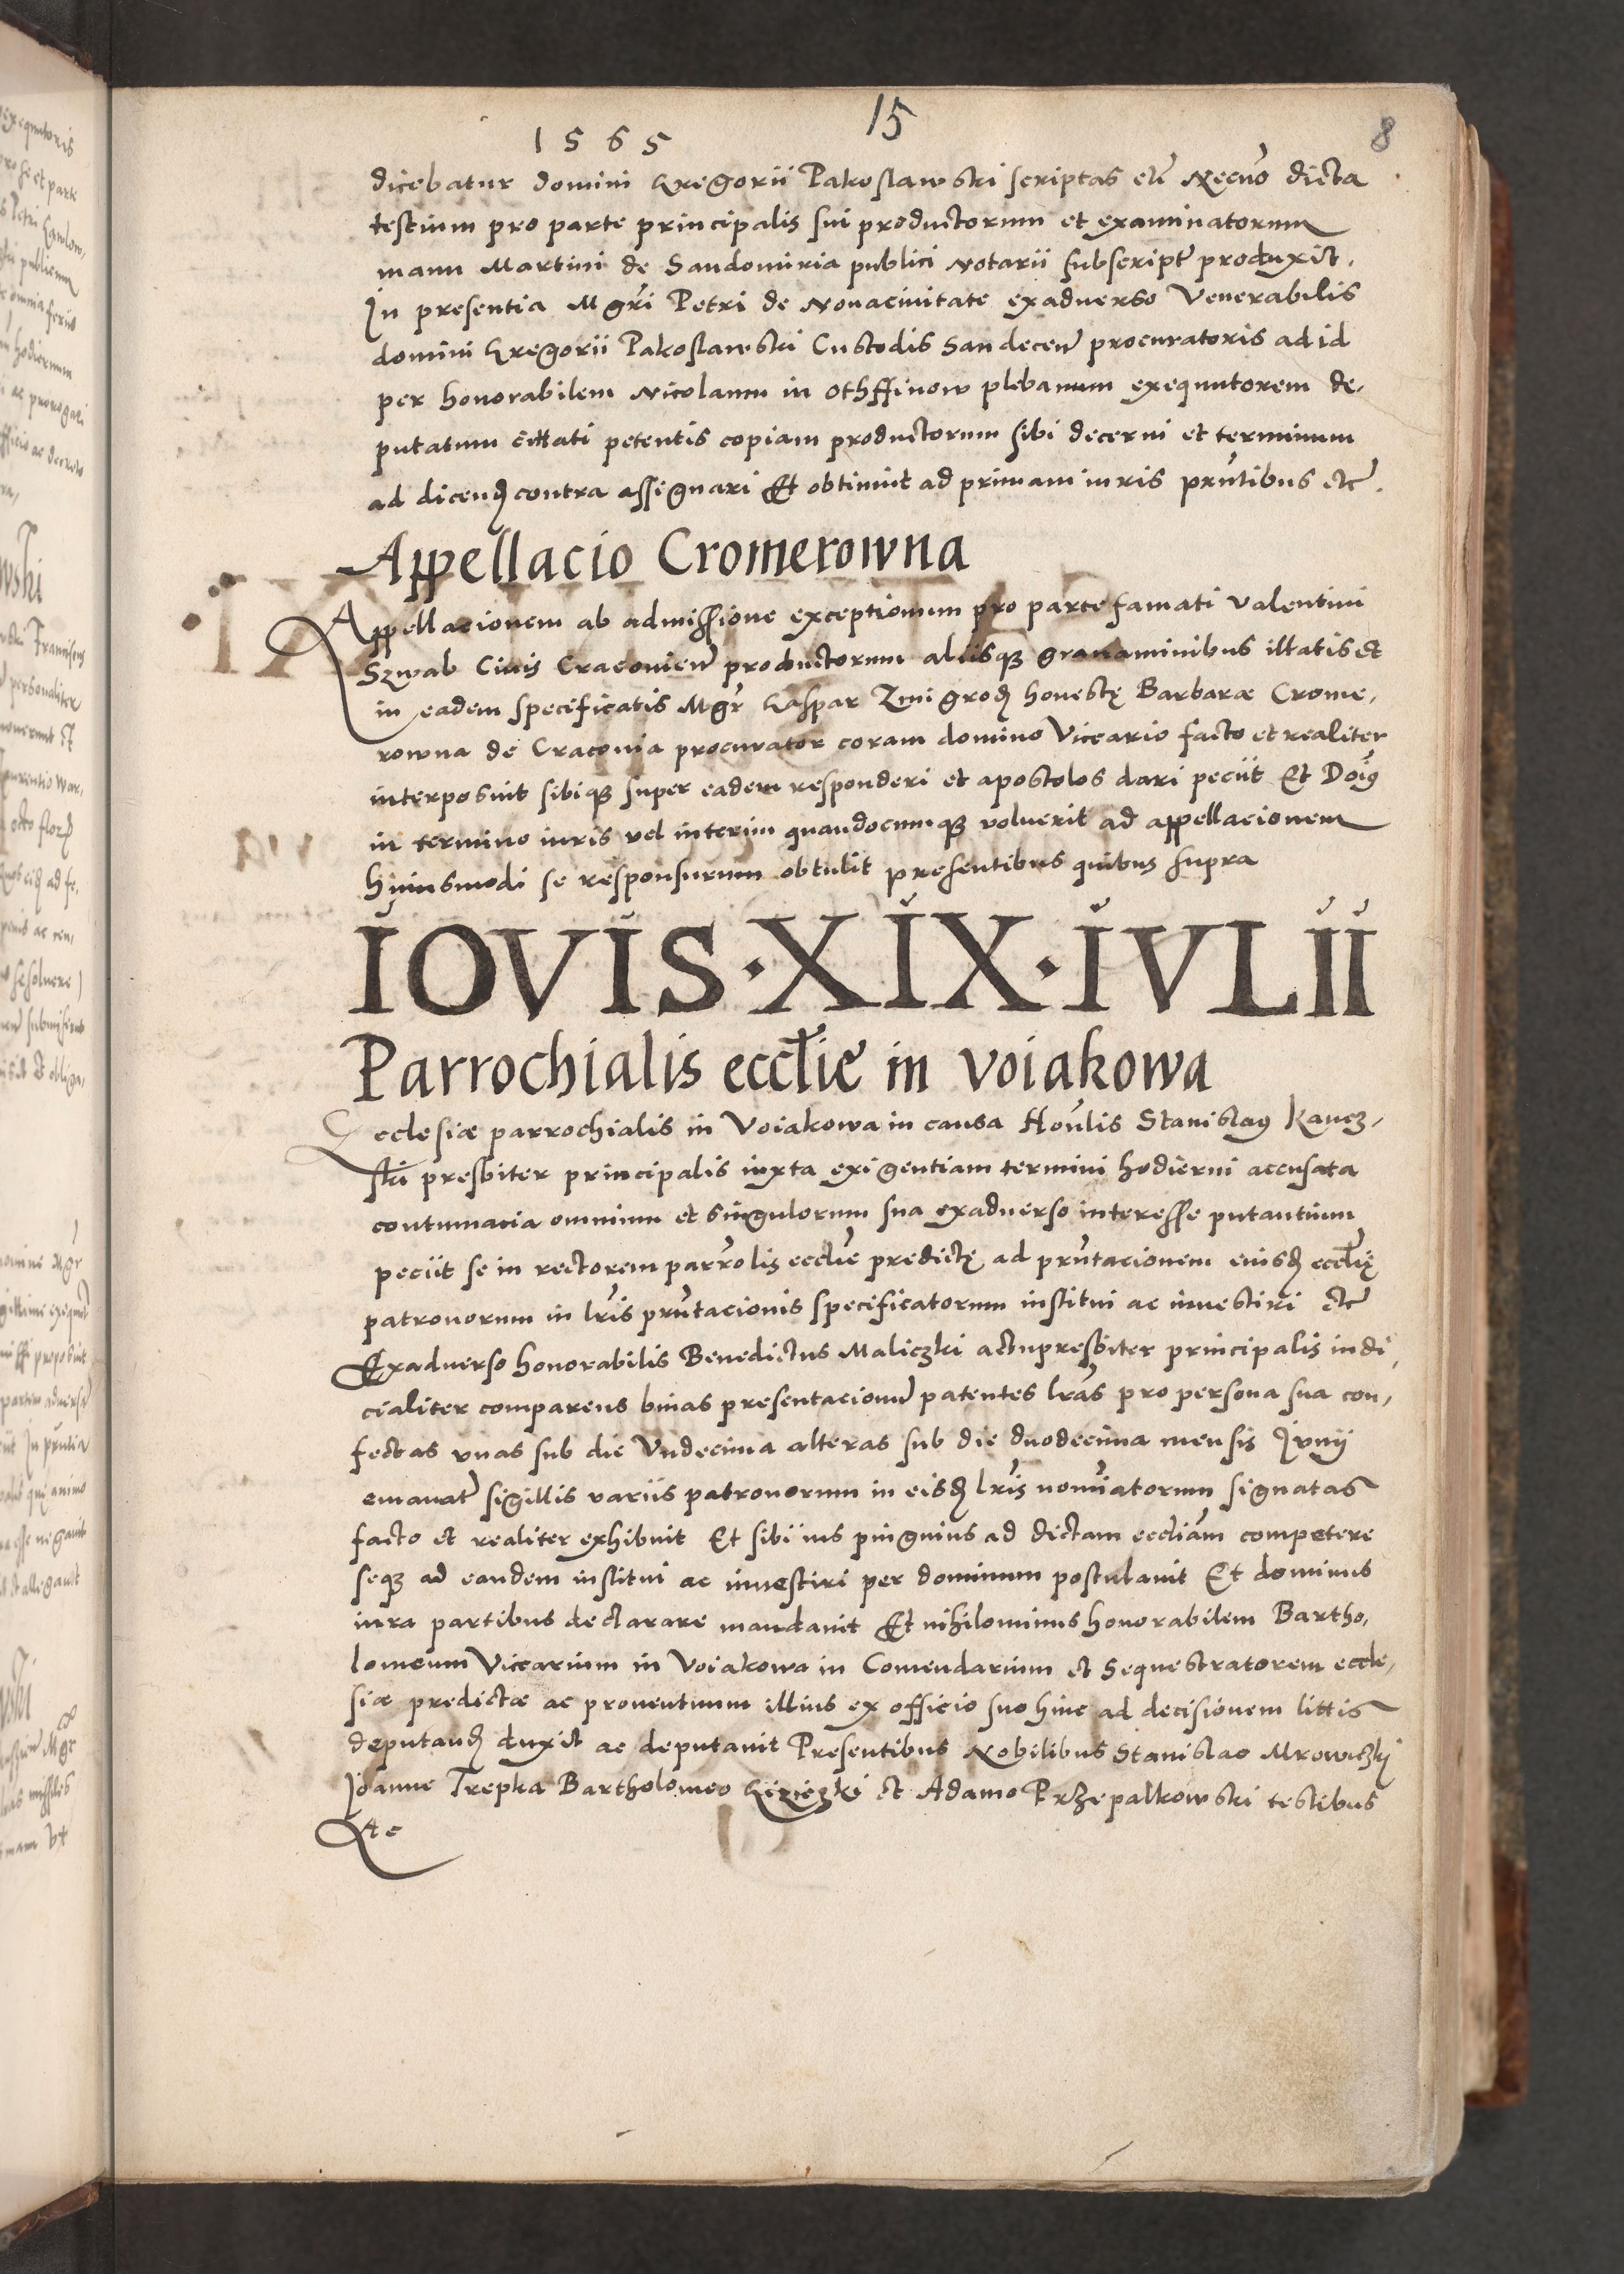 1565
15
8
dicebatur domini Gregorii Pakoslawski scriptas etc̃ Necnõ dicta
testium pro parte principalis sui productorum et examinatorum
manu Martini de Sandomiria publici Notarii subscript̃ produxit.
In presentia Mgr̃i Petri de Novacivitate exadverso Venerabilis
domini Gregorii Pakoslawski Custodis Sandeceñ procuratoris ad id
per honorabilem Nicolaum in Othffinow plebanum exequutorem de,
putatum cittati petentis copiam productorum sibi decerni et terminum
ad dicend contra assignari Et obtinuit ad primam iuris pñtibus etc̃.
Appellacio Cromerowna
Appellacionem ab admissione exceptionum pro parte famati Valentini
Szwab Civis Cracovieñ productorum aliisq̃ gravaminibus illatis et
in eadem specificatis Mgr̃ Gaspar Zmigrod honestę Barbaræ Crome,
rowna de Cracovia procurator coram domino Viceario facto et realiter
interposuit sibiq̃ super eadem responderi et apostolos dari peciit Et Dõiq
in termino iuris vel interim quandocumq̃ voluerit ad appellacionem
huiusmodi se responsurum obtulit presentibus quibus supra
IOVIS·XIX·IVLII
Parrochialis eccl̃ie in Voiakowa
Ecclesiæ parrochialis in Voiakowa in causa Hoñlis Stanislaq Kancz,
ski presbiter principalis iuxta exigentiam termini hodierni accusata
contumacia omnium et singulorum sua exadverso interesse putantium
peciit se in rectorem parrõlis eccl̃ie predictę ad pñtacionem eiusd eccl̃ię
patronorum in lr̃is pñtacionis specificatorum institui ac investiri etc̃
Exadverso honorabilis Benedictus Maliczki actu presbiter principalis iudi,
cialiter comparens binas presentacionũ patentes lr̃as pro persona sua con,
fectas unas sub die Undecima alteras sub die duodecima mensis Junij
emanat̃ sigillis variis patronorum in eisd lr̃is nom̃iatorum signatas
facto et realiter exhibuit Et sibi ius pinguius ad dictam eccl̃iam competere
seq̃ ad eandem institui ac investiri per dominum postulavit Et dominus
iura partibus declarare mandavit Et nihilominus honorabilem Bartho,
lomeum Vicearium in Voiakowa in Comendarium et Sequestratorem eccle,
siæ predictæ ac proventuum illius ex officio suo hinc ad decisionem littis
deputand duxit ac deputavit Presentibus Nobilibus Stanislao Mrowiczki
Joanne Trepka Bartholomeo et Adamo Przepalkowski testibus